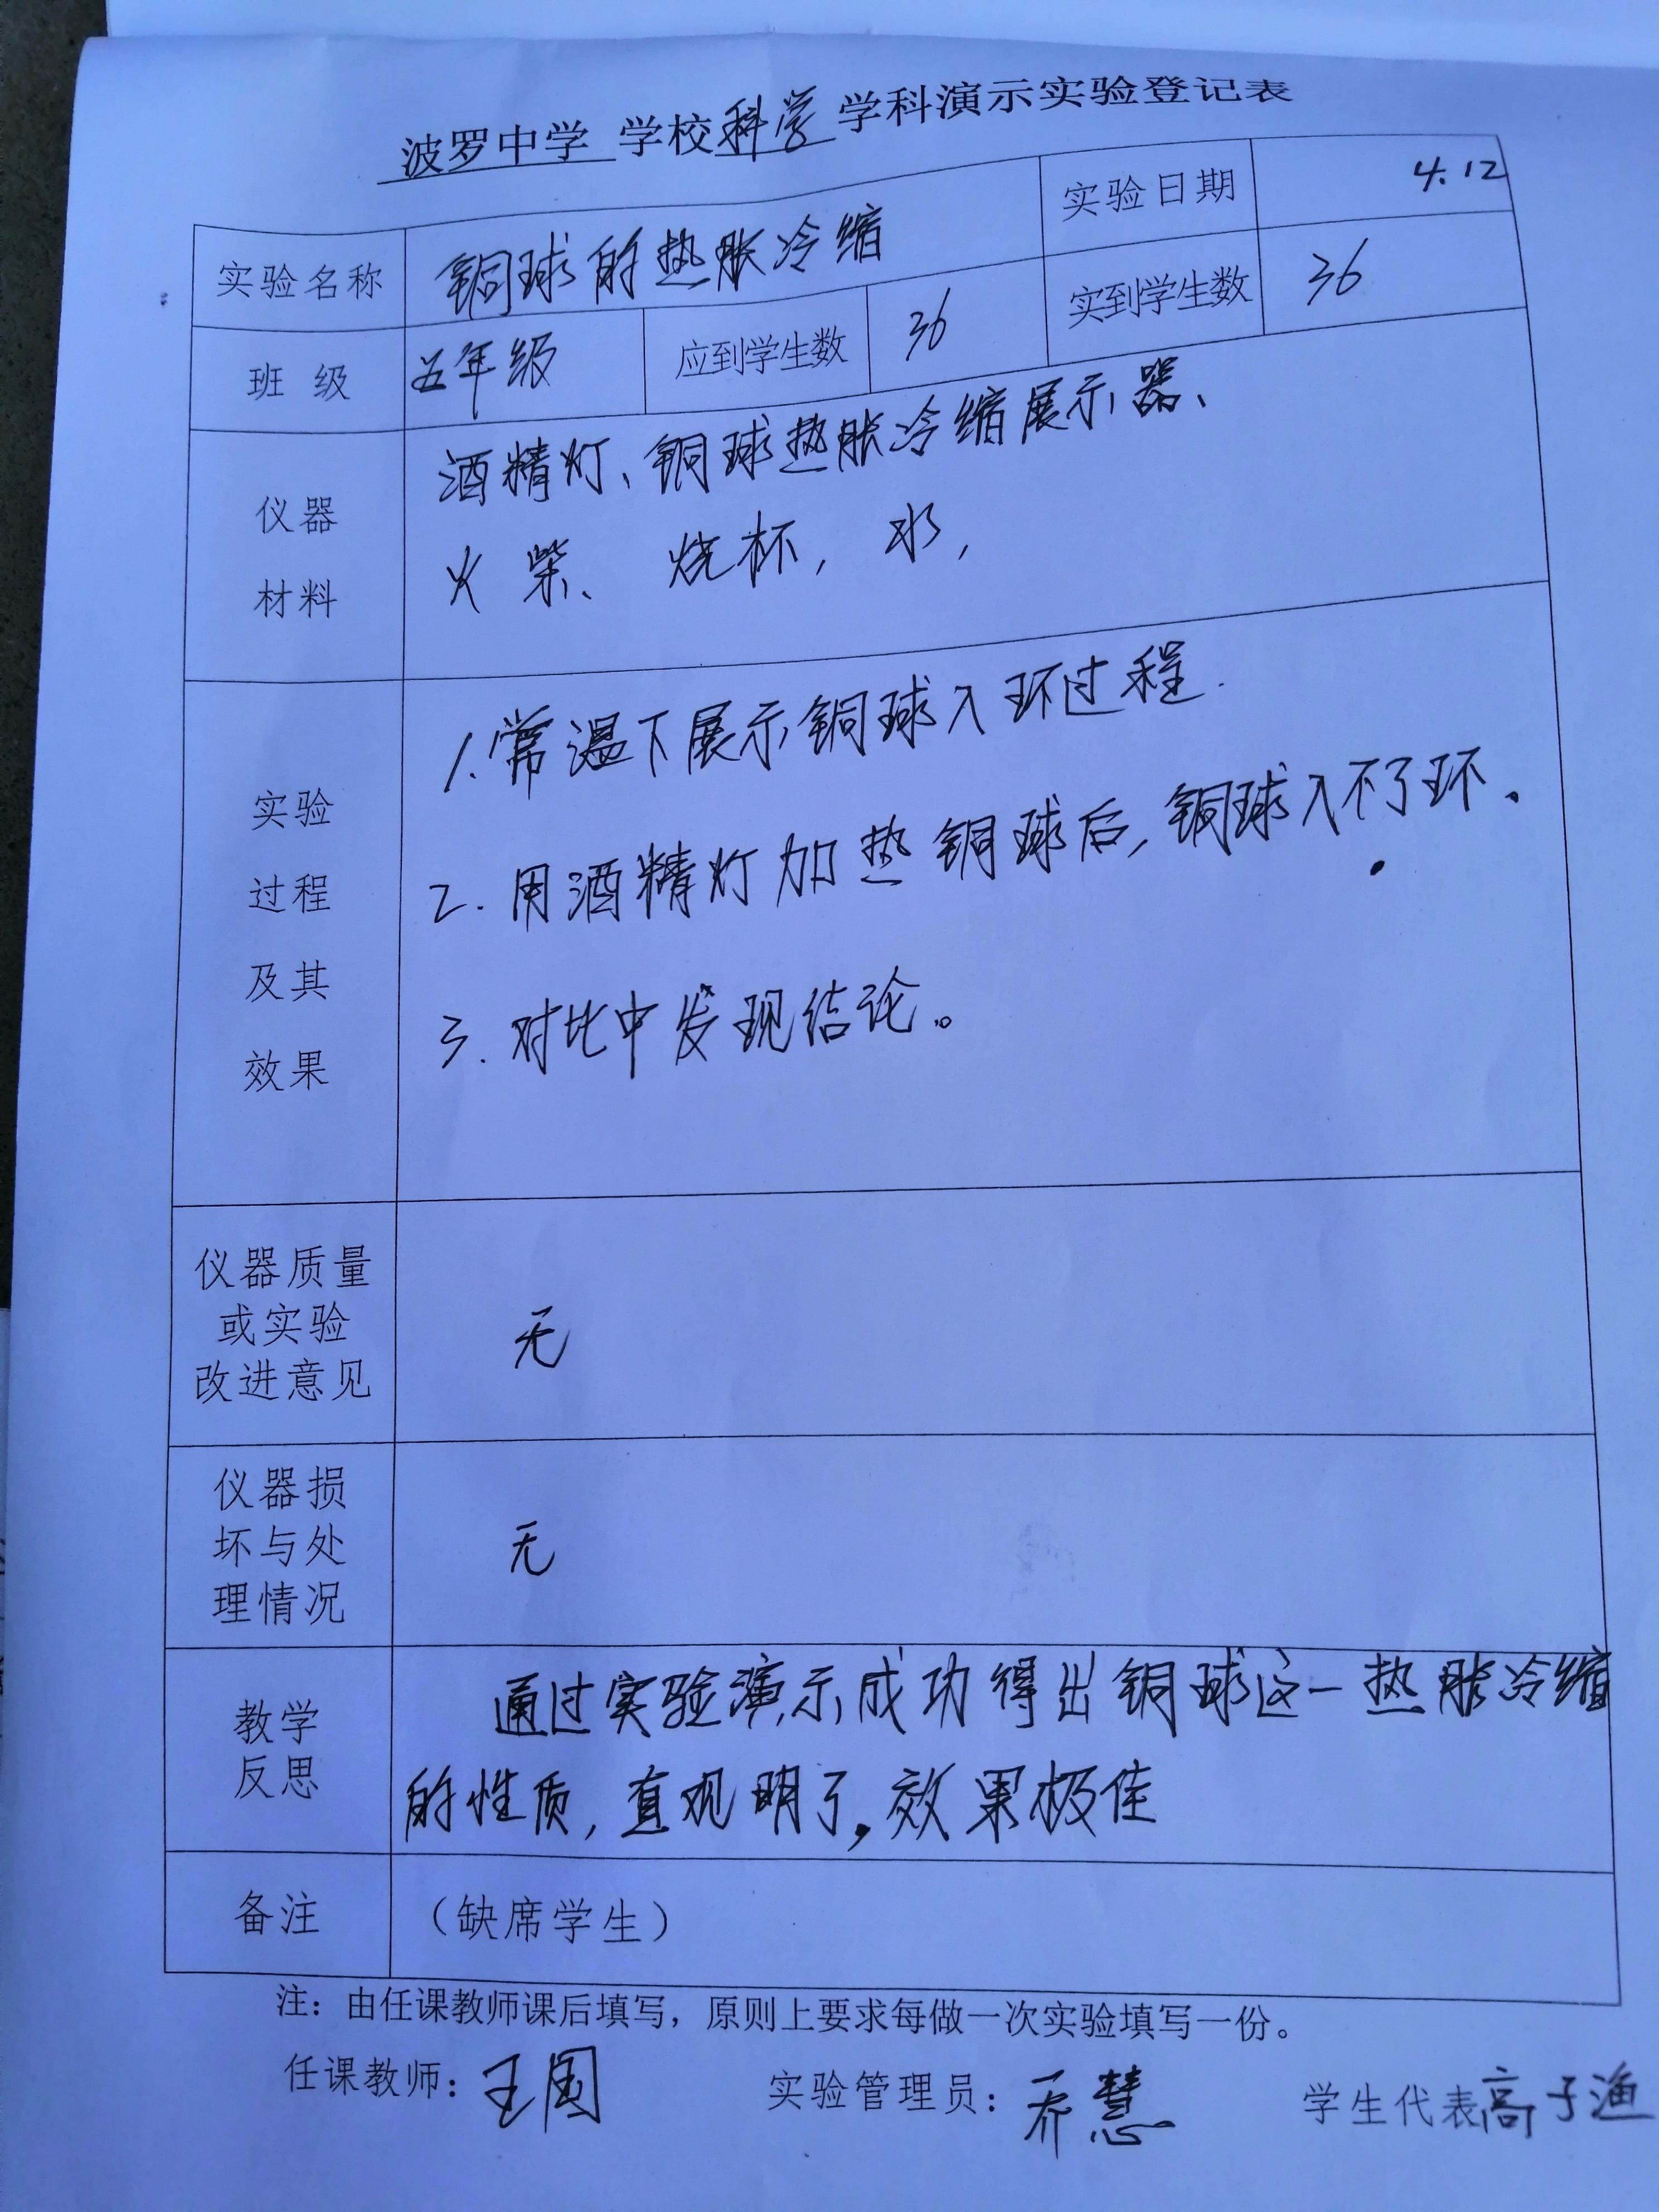 波罗中学 学校科学学科演示实验登记表
实验名称 铜球的热胀冷缩 实验日期 4.12
班 级 五年级 应到学生数 36 实到学生数 36
仪器
材料
酒精灯、铜球热胀冷缩展示器、
火柴、烧杯，水，
实验
过程
及其
效果
1.常温下展示铜球入环过程.
2.用酒精灯加热铜球后，铜球入不了环。
3.对比中发现结论。
仪器质量
或实验
改进意见
无
仪器损
坏与处
理情况
无
教学
反思
通过实验演示成功得出铜球这一热胀冷缩
的性质，直观明了，效果极佳
备注 （缺席学生）
注：由任课教师课后填写，原则上要求每做一次实验填写一份。
任课教师：王国 实验管理员：乔慧 学生代表高子渔